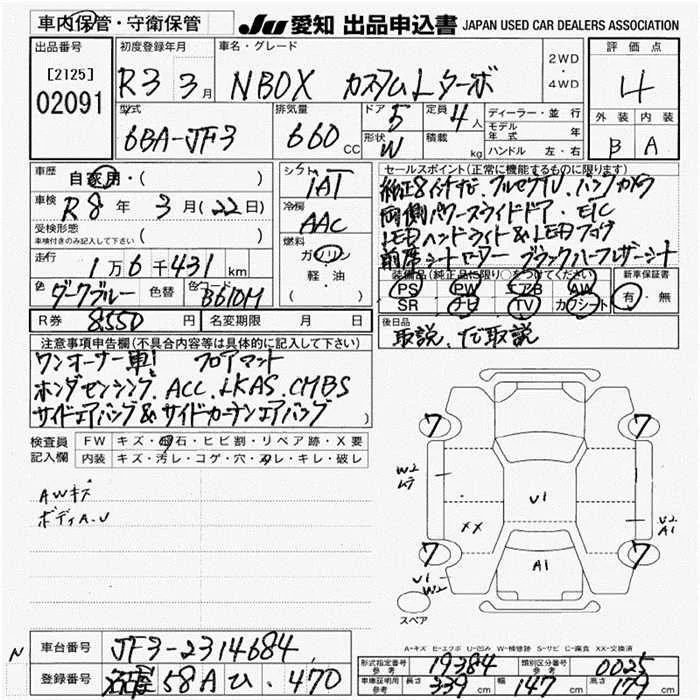 車内保管・守衛保管
JU愛知 出品申込書 JAPAN USED CAR DEALERS ASSOCIATION
出品番号
[2125]
02091
初度登録年月
R3 3月
車名・グレード
NBOX カスタムLターボ
2WD
・
4WD
評価点
4
外装 内装
B A
型式
6BA-JF3
排気量
660 CC
ドア 5
形状 W
定員 4人
積載 kg
ディーラー・並行
モデル年式 年
ハンドル 左・右
車歴
自家用・( )
車検
R8年 3月(22日)
受検形態
車検付きのみ記入して下さい ( )
走行
1万6千431km
色
ダークブルー
色替
色コード
B610M
シフト
IAT
冷房
AAC
燃料
ガソリン
軽・油
( )
セールスポイント(正常に機能するものに限ります)
純正8インチナビ、フルセグTV、バックカメラ
両側パワースライドドア・ETC
LEDヘッドライト&LEDフォグ
前席シートヒーター ブラックハーフレザーシート
装備品(純正品に限り○をつけてください)
PS PW エアB AW
SR ナビ TV カワシート
新車保証書
有・無
R券 8550円
名変期限 月 日
後日品
取説、ナビ取説
注意事項申告欄(不具合内容等は具体的に記入して下さい)
ワンオーナー車! フロアマット
ホンダセンシング、ACC、LKAS、CMBS
サイドエアバッグ&サイドカーテンエアバッグ )
検査員記入欄
FW キズ・飛石・ヒビ割・リペア跡・X要
内装 キズ・汚レ・コゲ・穴・スレ・キレ・破レ
AWキズ
ボディA.U
7 7
W2
ムラ
U1
XX
U2
A1
7 7
A1
U1
W2
スペア
A-キズ E-エクボ U-凹み W-補修跡 S-サビ C-腐食 XX-交換済
N
車台番号 JF3-2314684
登録番号 名古屋 58A ひ・470
形式指定番号 参考 19384
類別区分番号 参考 0025
車庫証明用 参考 長さ 339cm 幅 147cm 高さ 179cm